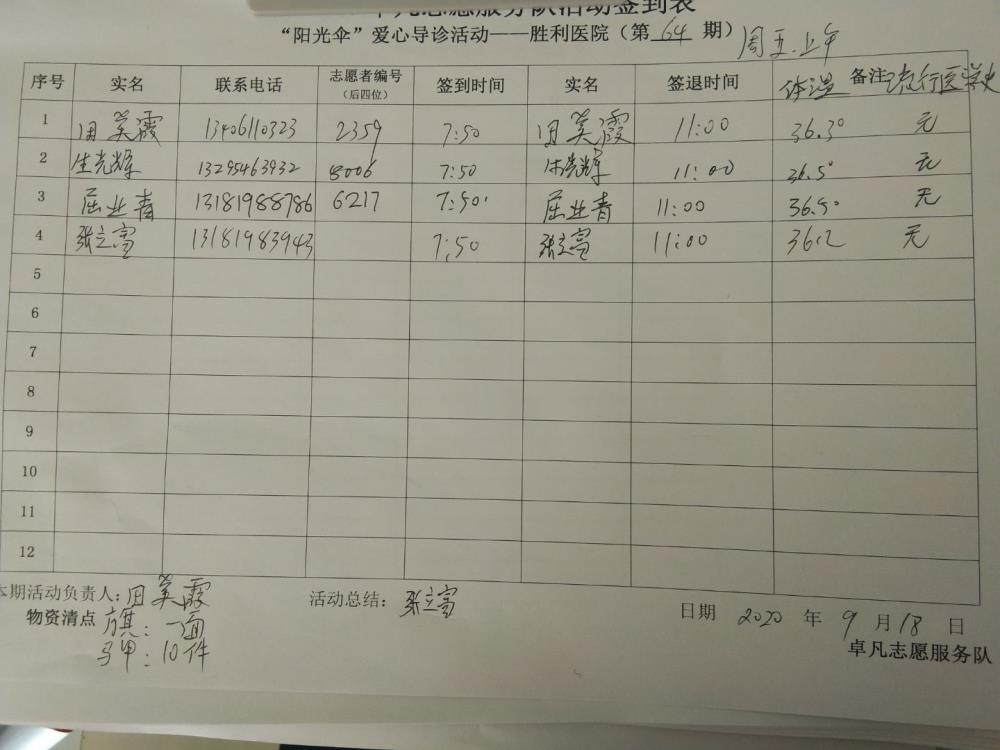 卓凡志愿服务队活动签到表
“阳光伞”爱心导诊活动——胜利医院（第 64 期） 周五.上午
序号 实名 联系电话 志愿者编号（后四位） 签到时间 实名 签退时间 体温 备注 流行医学史
1 田美霞 13406110323 2359 7:50 田美霞 11:00 36.3° 无
2 生光辉 13295463932 8006 7:50 生光辉 11:00 36.5° 无
3 屈业青 13181988786 6217 7:50 屈业青 11:00 36.5° 无
4 张立富 13181983943 7:50 张立富 11:00 36.2 无
5
6
7
8
9
10
11
12
本期活动负责人：田美霞 活动总结：张立富 日期 2020 年 9 月 18 日
物资清点 旗：一面
马甲：10件
卓凡志愿服务队